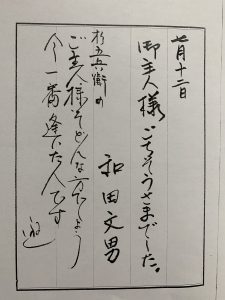 七月十二日
御主人様ごちそうさまでした。
和田文男
杉五兵衛の
ご主人様そどんな方でしょう
今一番逢いた人です